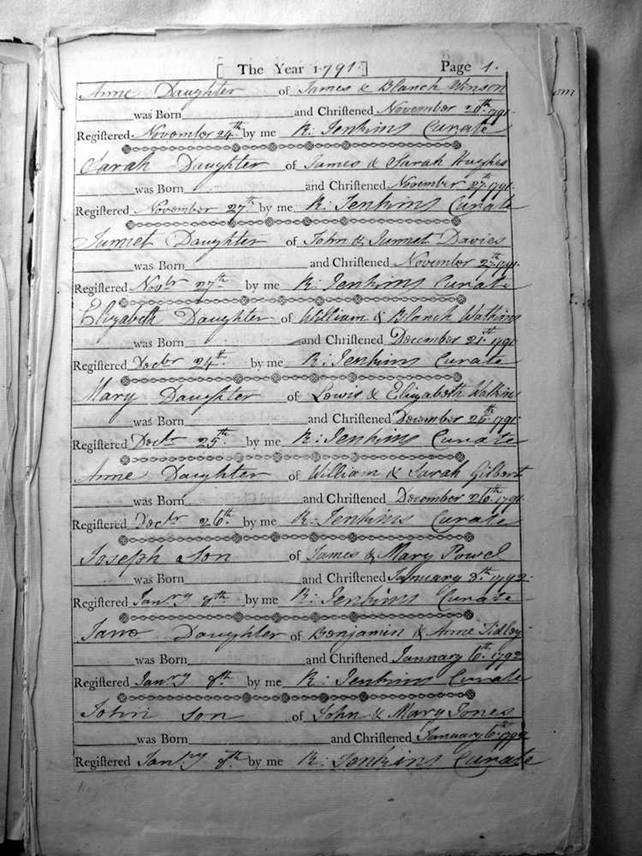 [ The Year 1791 ] Page 1.
Anne Daughter of James & Blanch Vinson
was Born and Chriſtened November 20th 1791
Regiſtered November 24th by me R: Jenkins Curate
Sarah Daughter of James & Sarah Hughes
was Born and Chriſtened November 27th 1791
Regiſtered November 27th by me R: Jenkins Curate
Junnet Daughter of John & Junnet Davies
was Born and Chriſtened November 27th 1791
Regiſtered Novbr 27th by me R: Jenkins Curate
Elizabeth Daughter of William & Blanch Watkins
was Born and Chriſtened December 21st 1791
Regiſtered Decbr 24th by me R: Jenkins Curate
Mary Daughter of Lewis & Elizabeth Watkin
was Born and Chriſtened December 25th 1791
Regiſtered Decbr 25th by me R: Jenkins Curate
Anne Daughter of William & Sarah Gilbert
was Born and Chriſtened December 26th 1791
Regiſtered Decbr 26th by me R: Jenkins Curate
Joseph Son of James & Mary Powel
was Born and Chriſtened January 1792
Regiſtered Janry by me R: Jenkins Curate
Jane Daughter of Benjamin & Anne Tidley
was Born and Chriſtened January 6th 1792
Regiſtered Janry 8th by me R: Jenkins Curate
John Son of John & Mary Jones
was Born and Chriſtened January 6th 1792
Regiſtered Janry by me R: Jenkins Curate